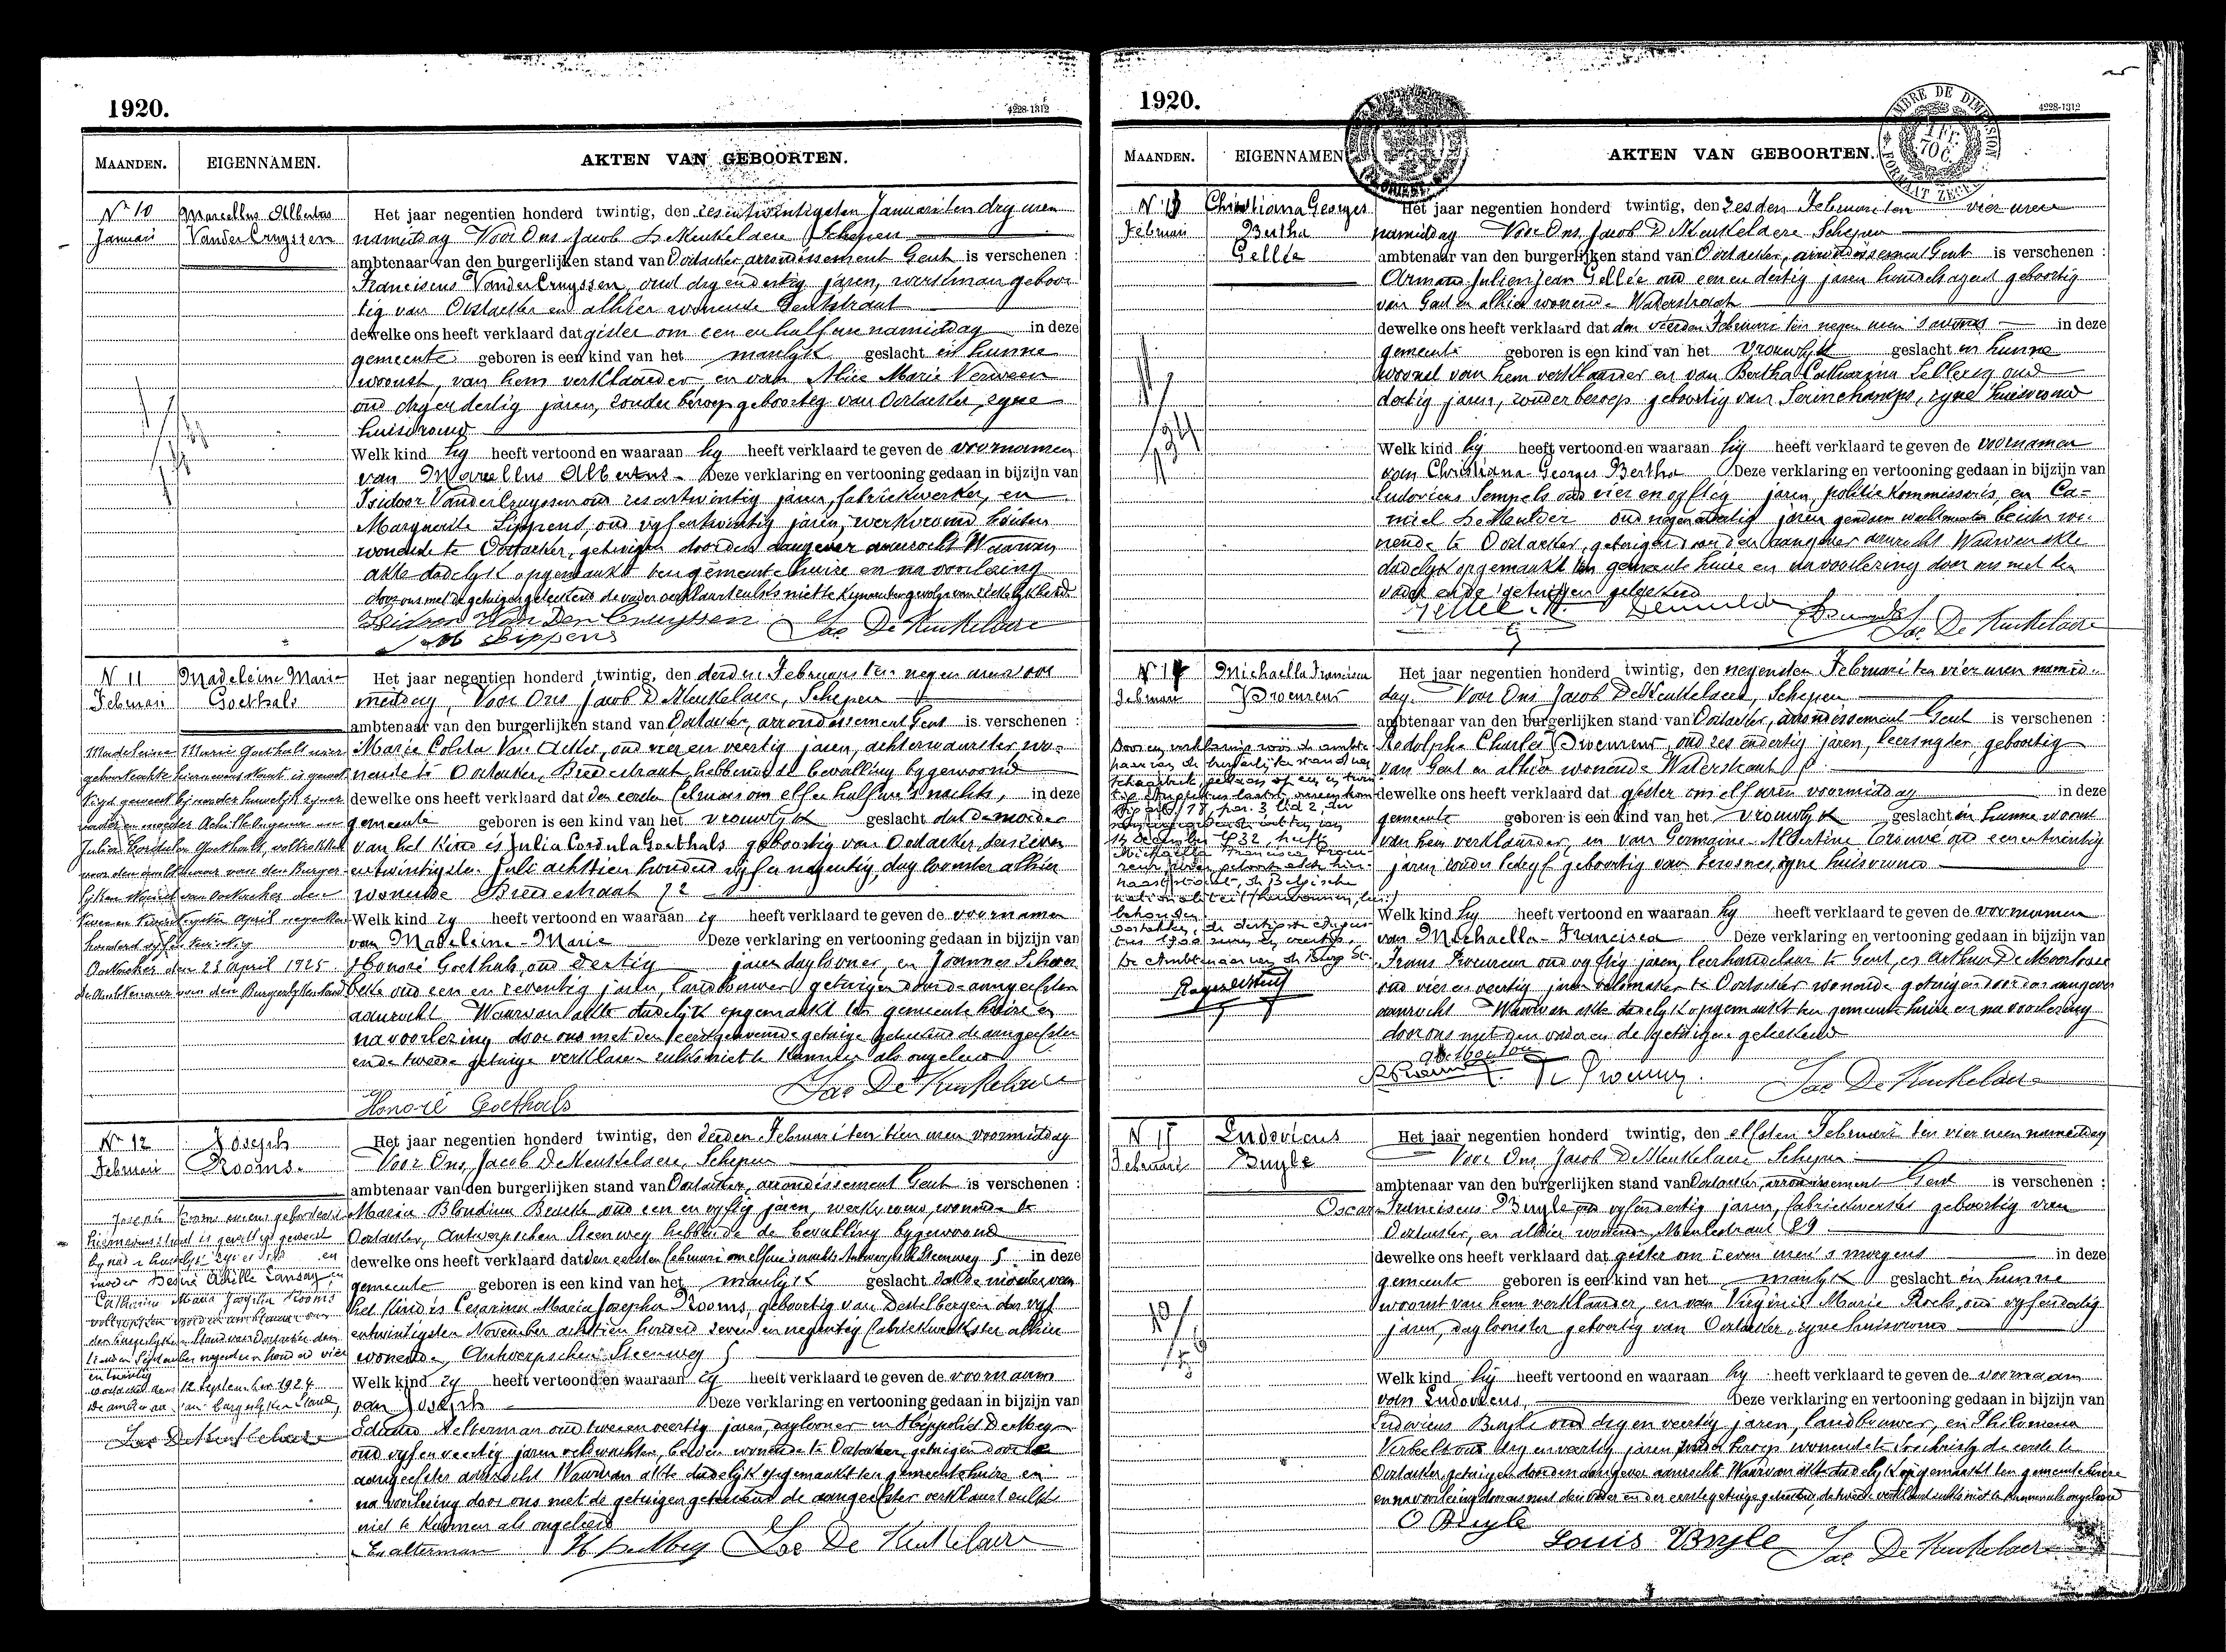 1920.
4228-1312
MAANDEN.
EIGENNAMEN.
AKTEN VAN GEBOORTEN.
No 10
Januari
Marcellus Albertus
VanderCruyssen
Het jaar negentien honderd twintig, den zesentwintigsten Januari ten dry uren
namiddag Voor Ons Jacob De Keukelaere Schepen
ambtenaar van den burgerlijken stand van Oostacker, arrondissement Gent is verschenen :
Franciscus VanderCruyssen, oud dryendertig jaren, werkman geboor
tig van Oostacker en alhier wonende
dewelke ons heeft verklaard dat gister om een en half ure namiddag in deze
gemeente geboren is een kind van het manlyk geslacht in hunne
woonst, van hem verklaarder, en van Alice Marie Verween
oud dryendertig jaren, zonder beroep geboortig van Oostacker, zyne
huisvrouw
Welk kind hy heeft vertoond en waaraan hy heeft verklaard te geven de voornamen
van Marcellus Albertus - Deze verklaring en vertooning gedaan in bijzijn van
Isidoor VanderCruyssen oud zesentwintig jaren, fabriekwerker, en
Marguerite Lippens, oud vyfentwintig jaren, werkvrouw beiden
wonende te Oostacker, getuigen door den aangever aanzocht Waarvan
akte dadelyk opgemaakt ten gemeentehuize en na voorlezing
door ons met de getuigen geteekend de vader verklaart zulks niet te kunnen
Isidoor Van Den Cruyssen
M Lippens
Jac De Keukelaere
N 11
Februari
Madeleine Marie
Goethals
Het jaar negentien honderd twintig, den derden Februari ten negen uren voor
middag, Voor Ons Jacob De Keukelaere, Schepen
ambtenaar van den burgerlijken stand van Oostacker, arrondissement Gent is verschenen :
Marie Coleta Van Acker, oud vier en veertig jaren, achterwaarster wo-
nende te Oostacker, Breedestraat, hebbende de bevalling bygewoond
dewelke ons heeft verklaard dat den eersten Februari om elf en half ure 's nachts, in deze
gemeente geboren is een kind van het vrouwlyk geslacht dat de moeder
van het kind is Julia Cordula Goethals geboortig van Oostacker, den zeven
entwintigsten Juli achttien honderd vyf en negentig, dagloonster alhier
wonende Breedestraat 72
Welk kind zy heeft vertoond en waaraan zy heeft verklaard te geven de voornamen
van Madeleine-Marie Deze verklaring en vertooning gedaan in bijzijn van
Honoré Goethals oud dertig jaren daglooner, en Joannes
oud een en zeventig jaren, landbouwer getuigen door de aangeefster
aanzocht Waarvan akte dadelyk opgemaakt ten gemeentehuize en
na voorlezing door ons met den eerstgenoemde getuige geteekend de aangeefster
en de tweede getuige verklaren zulks niet te kunnen als ongeleerd
Honoré Goethals
Jac De Keukelaere
Madeleine Marie Goethals wier
geboorteakte hiernevens staat is gewet
tigd geweest bij nader huwelijk zijner
vader en moeder
Julia Cordula Goethals, voltrokken
voor den ambtenaar van den Burger
lijken Stand van Oostacker den
April negentien
honderd vijf en twintig
Oostacker den 23 April 1925
De Ambtenaar van den Burgerlyken Stand
No 12
Februari
Joseph
Rooms.
Het jaar negentien honderd twintig, den derden Februari ten tien uren voormiddag
Voor Ons, Jacob De Keukelaere, Schepen
ambtenaar van den burgerlijken stand van Oostacker, arrondissement Gent is verschenen :
Maria Blondina oud een en vyftig jaren, werkvrouw, wonende te
Oostacker, Antwerpschen Steenweg hebbende de bevalling bygewoond
dewelke ons heeft verklaard dat den eersten Februari om elf ure 's nachts Antwerpschen Steenweg 5 in deze
gemeente geboren is een kind van het manlyk geslacht dat de moeder van
het kind is Cesarina Maria Josepha Rooms, geboortig van Destelbergen den vyf
entwintigsten November achttien honderd zeven en negentig fabriekwerkster alhier
wonende, Antwerpschen Steenweg 5
Welk kind zy heeft vertoond en waaraan zy heeft verklaard te geven de voornaam
van Joseph Deze verklaring en vertooning gedaan in bijzijn van
Eduard Aelterman oud twee en veertig jaren, daglooner en Hippoliet De Mey
oud vyf en veertig jaren veldwachter, beiden wonende te Oostacker, getuigen door de
aangeefster aanzocht Waarvan akte dadelijk opgemaakt ten gemeentehuize en
na voorlezing door ons met de getuigen geteekend de aangeefster verklaart zulks
niet te kunnen als ongeleerd
H De Mey
Jac De Keukelaere
hiernevens staat is gewettigd geweest
moeder Désiré Achille Lansay en
Maria Josepha Rooms
voltrokken voor den ambtenaar van
den burgerlyken Stand van Oostacker den
September negentien honderd vier
en twintig
Oostacker den 12 September 1924
burgerlyken Stand,
Jac De Keukelaere
1920.
4228-1312
TIMBRE DE DIMENSION
FORMAAT ZEGEL
MAANDEN.
EIGENNAMEN
AKTEN VAN GEBOORTEN.
N 13
Februari
Christiana Georges
Bertha
Gellée
Het jaar negentien honderd twintig, den zesden Februari ten vier uren
namiddag Voor Ons, Jacob De Keukelaere Schepen
ambtenaar van den burgerlijken stand van Oostacker, arrondissement Gent is verschenen :
Armand Julien Jean Gellée oud een en dertig jaren handelsagent geboortig
van Gent en alhier wonende Waterstraat
dewelke ons heeft verklaard dat den vierden Februari ten negen uren 's avonds in deze
gemeente geboren is een kind van het vrouwlyk geslacht in hunne
woonst van hem verklaarder en van Bertha Catharina Leclercq oud
dertig jaren, zonder beroep geboortig van Serinchamps, zyne huisvrouw
Welk kind hij heeft vertoond en waaraan hij heeft verklaard te geven de voornamen
van Christiana Georges Bertha Deze verklaring en vertooning gedaan in bijzijn van
Ludovicus Sempels oud vier en vyftig jaren, politie kommissaris, en Ca-
miel De Meulder oud negen dertig jaren gendarm wachtmeester beiden wo-
nende te Oostacker, getuigen door den aangever aanzocht Waarvan akte
dadelyk opgemaakt ten gemeentehuize en na voorlezing door ons met den
vader en de getuigen geteekend
Jac De Keukelaere
N 14
Februari
Michaella Francisca
Procureur
Het jaar negentien honderd twintig, den negensten Februari ten vier uren namid-
dag. Voor Ons Jacob De Keukelaere, Schepen
ambtenaar van den burgerlijken stand van Oostacker, arrondissement Gent is verschenen :
Rodolphe Charles Procureur, oud zes en dertig jaren, leersnyder, geboortig
van Gent en alhier wonende Waterstraat
dewelke ons heeft verklaard dat gister om elf uren voormiddag in deze
gemeente geboren is een kind van het vrouwlyk geslacht in hunne woonst
van hem verklaarder, en van Germaine Albertine oud een en twintig
jaren zonder bedryf geboortig van zyne huisvrouw
Welk kind hy heeft vertoond en waaraan hy heeft verklaard te geven de voornamen
van Michaella-Francisca Deze verklaring en vertooning gedaan in bijzijn van
Frans Procureur oud vyftig jaren, leerhandelaar te Gent, en Arthur De Moerloose
oud vier en veertig jaren te Oostacker wonende getuigen door den aangever
aanzocht Waarvan akte dadelyk opgemaakt ten gemeentehuize en na voorlezing
door ons met den vader en de getuigen geteekend
Jac De Keukelaere
Door een verklaring vóór de ambte
naar van de burgerlijken stand van
1932, heeft
Michaella Francisca Procu
reur
naast de Belgische
nationaliteit
behouden
Oostakker, de dertigste
De Ambtenaar van de Burg. St.
N 15
Februari
Ludovicus
Buyle
Het jaar negentien honderd twintig, den elfsten Februari ten vier uren namiddag
Voor Ons Jacob De Keukelaere Schepen
ambtenaar van den burgerlijken stand van Oostacker, arrondissement Gent is verschenen :
Oscar Franciscus Buyle, oud vyfendertig jaren, fabriekwerker geboortig van
Oostacker, en alhier wonende Meulestraat 29
dewelke ons heeft verklaard dat gister om zeven uren 's morgens in deze
gemeente geboren is een kind van het manlyk geslacht in hunne
woonst van hem verklaarder, en van Virginie Marie Roels, oud vyfendertig
jaren, dagloonster geboortig van Oostacker, zyne huisvrouw
Welk kind hij heeft vertoond en waaraan hy heeft verklaard te geven de voornaam
van Ludovicus, Deze verklaring en vertooning gedaan in bijzijn van
Ludovicus Buyle oud dry en veertig jaren, landbouwer, en Philomena
oud dry en veertig jaren, zonder beroep wonende te Loochristy de eerste te
Oostacker, getuigen door den aangever aanzocht Waarvan akte dadelyk opgemaakt ten gemeentehuize
en na voorlezing door ons met den vader en den eerste getuige geteekend, de tweede verklaart zulks niet te kunnen als ongeleerd
O Buyle
Louis Buyle
Jac De Keukelaere